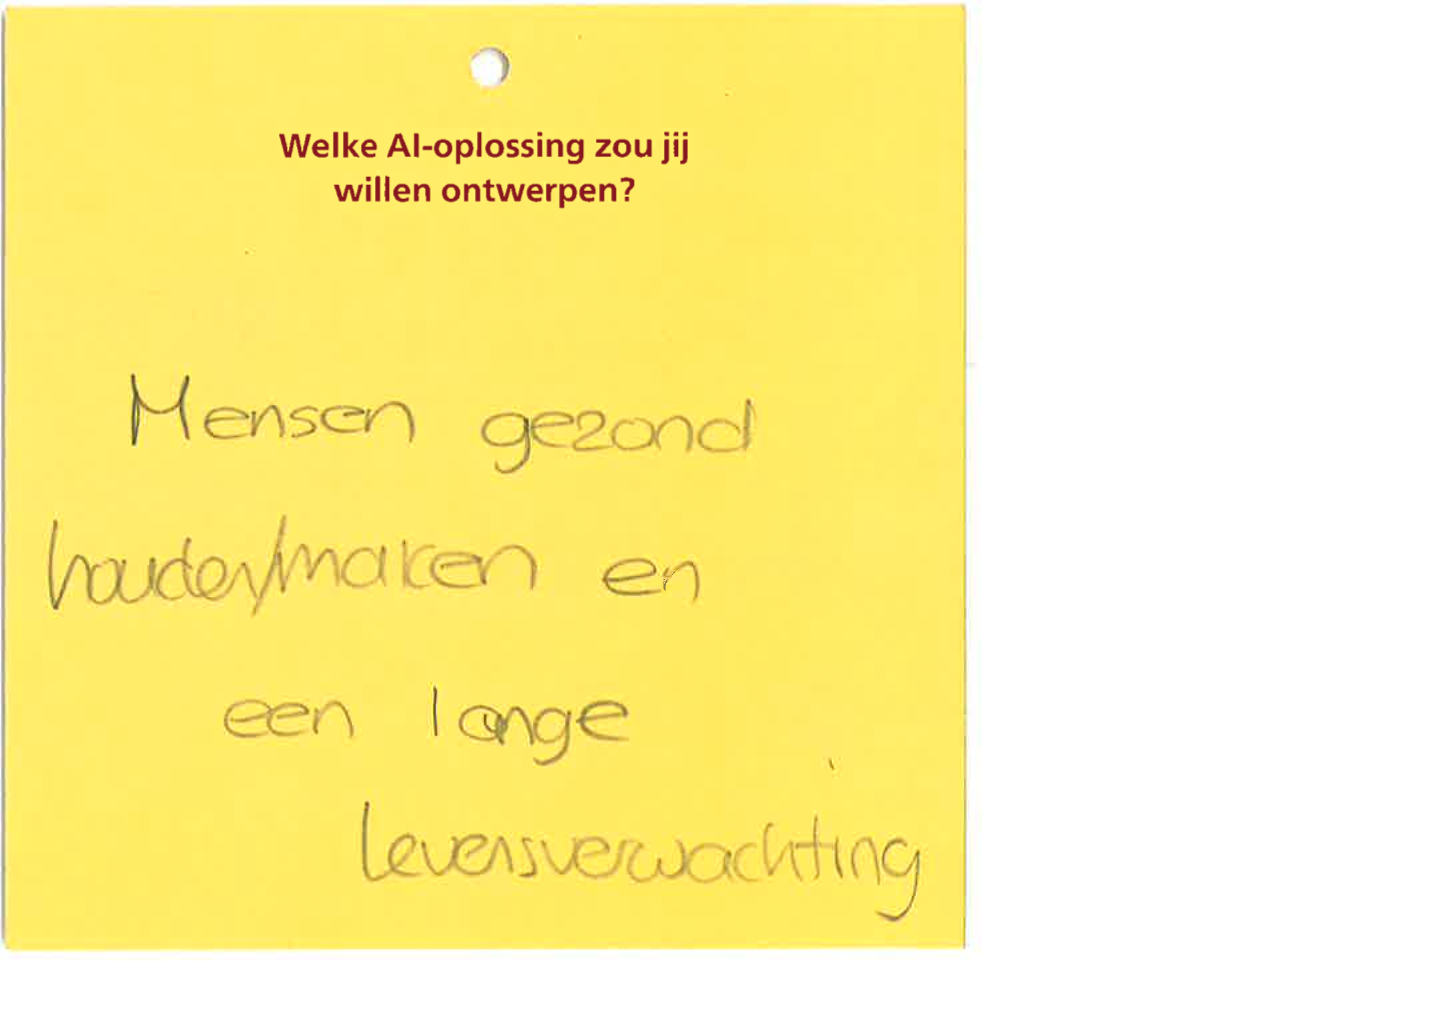 Welke AI-oplossing zou jij
willen ontwerpen?
Mensen gezond
houden/maken en
een lange
levensverwachting